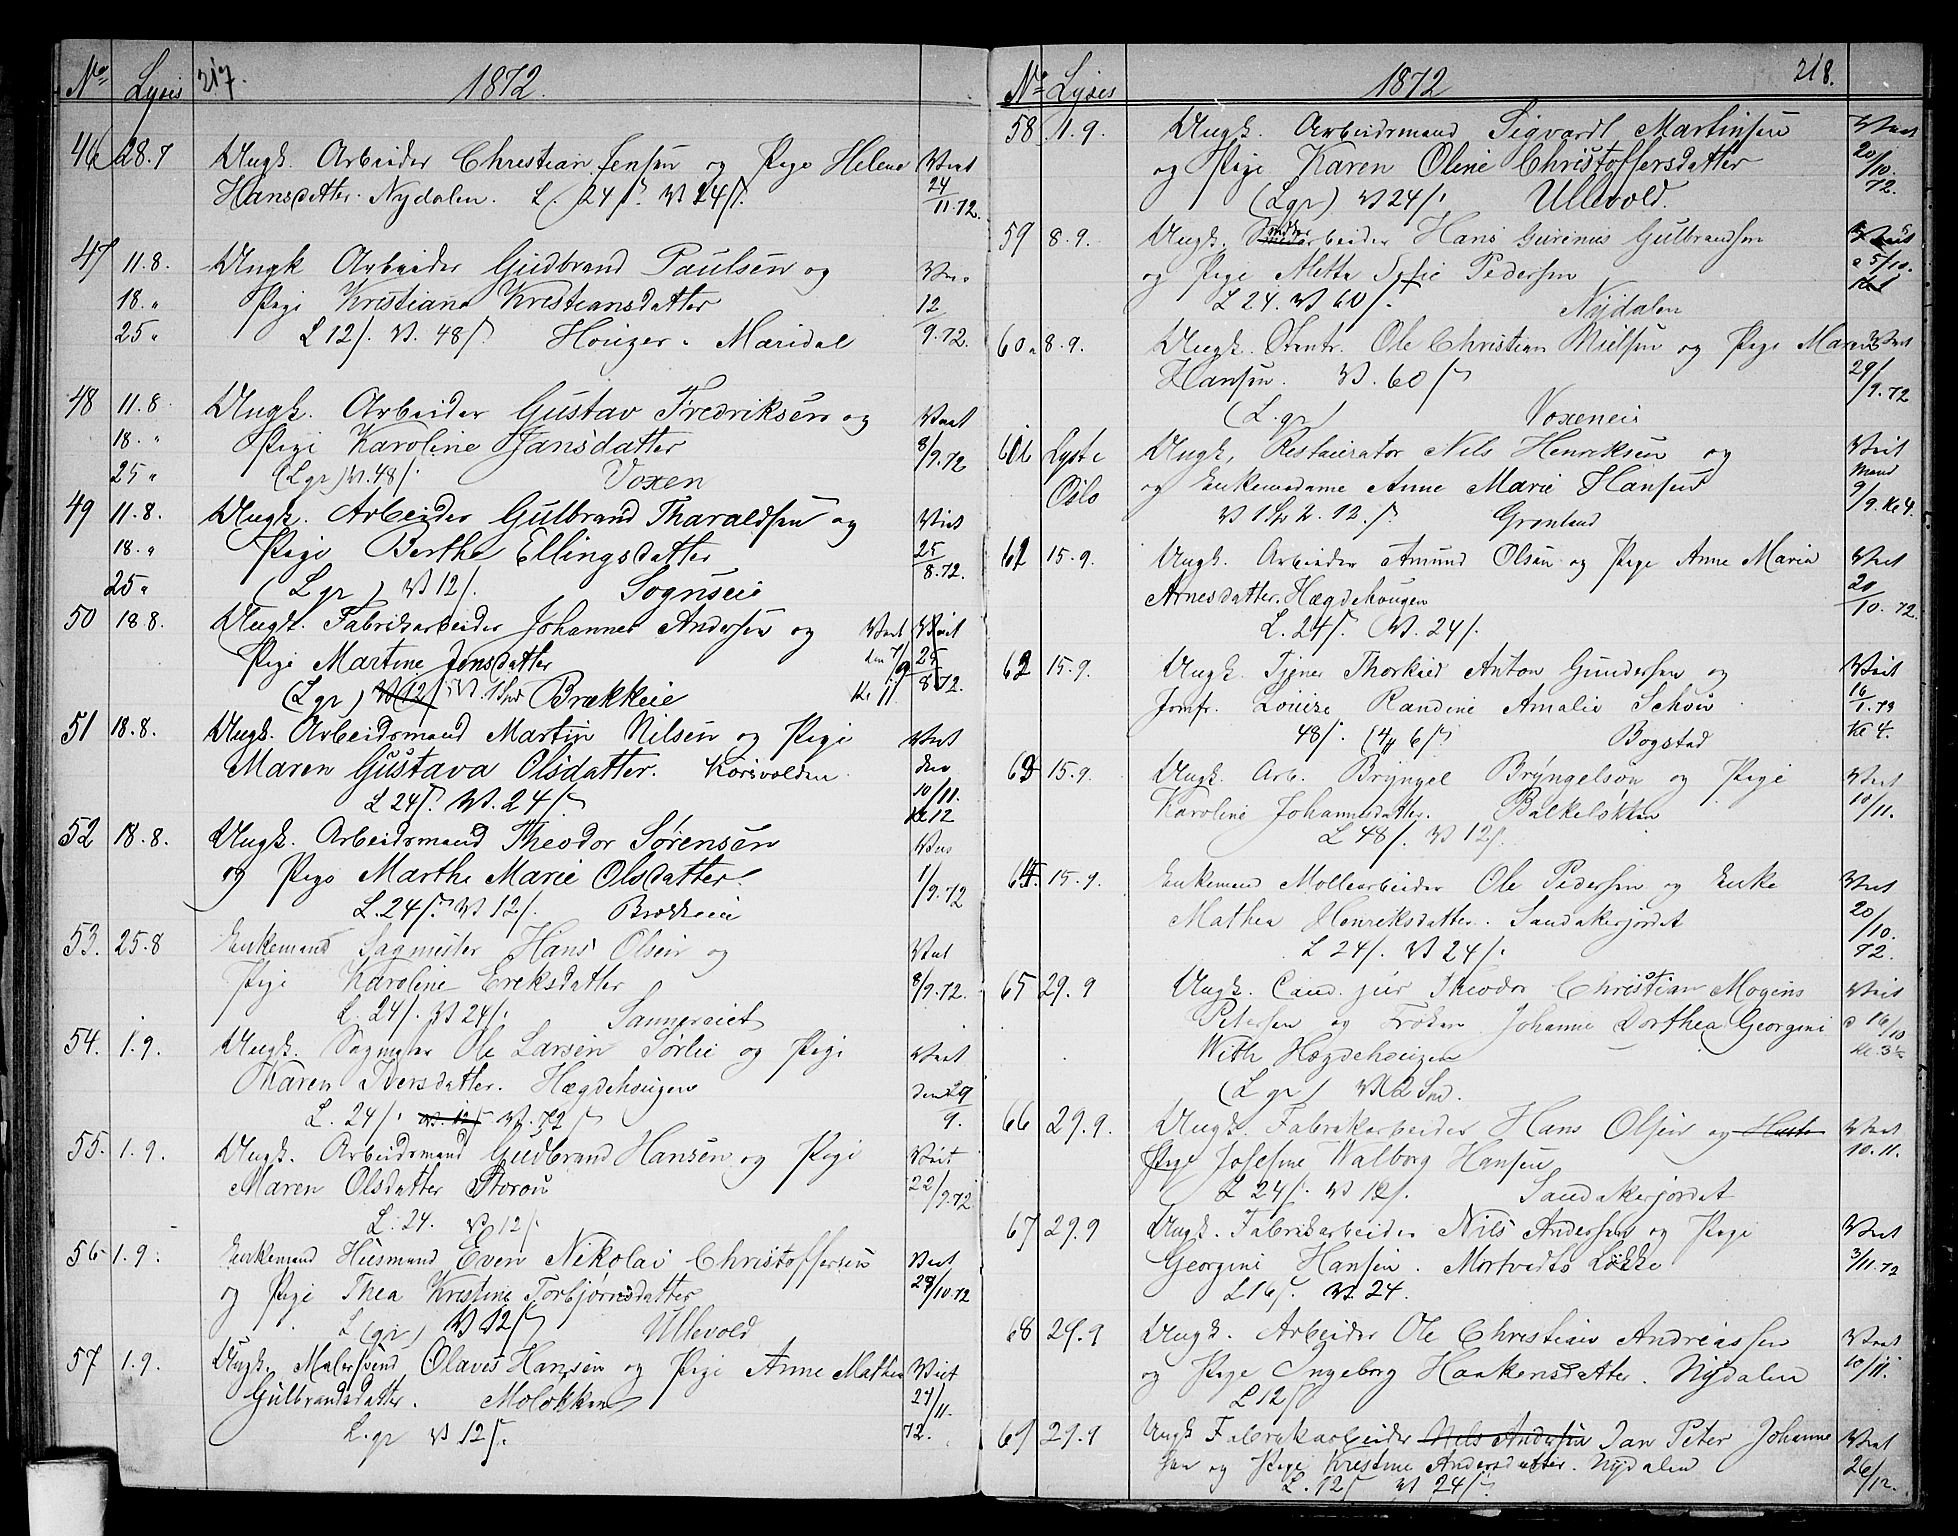 No Lysis 217. 1872.
46 28.7 Ungk. Arbeider Christian Jensen og Pige Helene Viet
Hansdatter. Nydalen. L. 24 s. V 24 s. 24/11.72.
47 11.8. Ungk Arbeider Gudbrand Paulsen og
18. " Pige Kristiane Kristiansdatter 12
25 " L 12 s. V. 48 s. Houger. Maridal 9.72.
48 11.8. Ungk. Arbeider Gustav Fredriksen og Viet
18. " Pige Karoline Hansdatter 8/9.72
25 " (L gr) V. 48 s. Voxen
49 11.8. Ungk. Arbeider Gulbrand Tharaldsen og Viet
18. " Pige Berthe Ellingsdatter 25
25 " (L gr) V 12 s. Sognseie 8.72.
50 18 8. Ungk. Fabrikarbeider Johannes Andersen og Viet Viet
Pige Martine Jensdatter den 7/9 25
(L gr) V 12 s V. 1 Spd Brækkeie Kl 11 8 72.
51 18.8. Ungk. Arbeidsmand Martin Nilsen og Pige Viet
Maren Gustava Olsdatter. Korsvolden. den
L 24 s. V. 24 s 10/11.
Kl 12
52 18.8. Ungk. Arbeidsmand Theodor Sørensen Viet
og Pige Marthe Marie Olsdatter. 1/9.72
L. 24 s. V 12 s. Brækkeie
53. 25.8 Enkemand Sagmester Hans Olsen og Viet
Pige Karoline Ereksdatter 8/9.72.
L. 24 s. V 24 s. Sannereiet
54. 1.9. Ungk. Sagmster Ole Larsen Sørlie og Pige Viet
Karen Iversdatter. Hægdehougen den 29
L. 24 s. V. 12 s V. 72 s 9.
55. 1.9. Ungk. Arbeidsmand Gudbrand Hansen og Pige Viet
Maren Olsdatter Storoen 22/9.72
L. 24. V 12 s
56 1.9. Enkemand Husmand Even Nikolai Christoffersen Viet
og Pige Thea Kristine Torbjørnsdatter /10.72
L (gr) V 12 s Ullevold
57 1.9. Ungk. Malersvend Olaves Hansen og Pige Anne Mathea Viet
Gulbrandsdatter. Moløkken 24/11.
L. gr V 12 s. 72.
No Lysis 1872 218.
58 1.9. Ungk. Arbeidsmand Sigvardt Martinsen Viet
og Pige Karen Oline Christoffersdatter 20/10.
(L gr) V 24 s. Ullevold. 72.
59 8.9. Ungk. arbeider Hans Gurinius Gulbrandsen
og Pige Mette Sofie Pedersen 5/10.
L 24. V 60 s. Nydalen
60 8.9. Ungk. Ole Christian Nielsen og Pige Maren Viet
Hansen. V. 60 s 29/9.72
(L. gr) Voxeneie
60b Lyst i Ungk. Restauratør Nils Henriksen og Viet
Oslo og Enkemadame Anne Marie Hansen 9/9. Kl 4.
V 1 Sp 2. 12. s. Grønland
61 15.9. Ungk. Arbeider Amund Olsen og Pige Anne Maria Viet
Arnesdatter. Hægdehougen 20
L. 24 s. V. 24 s. 10.72.
62 15.9. Ungk. Tjener Thorkild Anton Gundersen og Viet
Jomfr. Louise Randine Amalie Schou 16/1.73
48 s. Bogstad Kl 4.
63 15.9. Ungk. Arb. Bryngel Bryngelson og Pige Viet
Karoline Johannesdatter. Balkeløkken 10/11.
L 48 s. V 12 s.
64 15.9. Enkemand Møllearbeider Ole Pedersen og Enke Viet
Mathea Henriksdatter. Sandakerjordet 20/10.
L 24 s. V 24 s. 72.
65 29.9 Ungk. Cand. jur Theodor Christian Mogens Viet
Petersen og Frøken Johanne Dorthea Georgine d 16/10
With Hægdehougen Kl. 3½
(L gr) V 2 Spd.
66 29.9. Ungk. Fabrikarbeider Hans Olsen og Viet
Pige Josefine Walborg Hansen 10.11.
L 24 s. V 12 s. Sandakerjordet
67 29.9 Ungk. Fabrikarbeider Nils Andersen og Pige Viet
Georgine Hansen. Mortvedts Løkke 3/11.72
L 16 s. V. 24.
68 29.9 Ungk. Arbeider Ole Christian Andreassen Viet
og Pige Ingeborg Haakensdatter. Nydalen 10/11.
L 12 s
69 29.9 Ungk Fabrikarbeider Nils Andersen Jan Peter Johanne Viet
sen og Pige Kristine Andersdatter. Nydalen 26/12.
L. 12 s V 24 s.